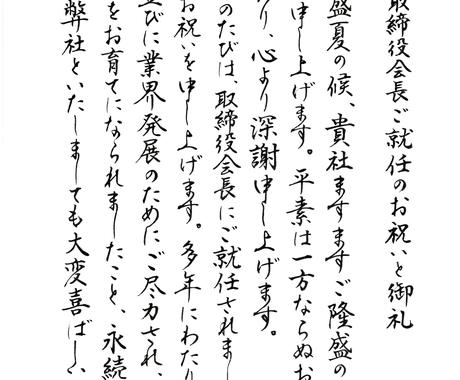 取締役会長ご就任のお祝いと御礼
盛夏の候、貴社ますますご隆盛の
申し上げます。平素は一方ならぬお
り、心より深謝申し上げます。
のたびは、取締役会長にご就任されまし
お祝いを申し上げます。多年にわたり
並びに業界発展のためにご尽力され、
をお育てになられましたこと、永続
弊社といたしましても大変喜ばし